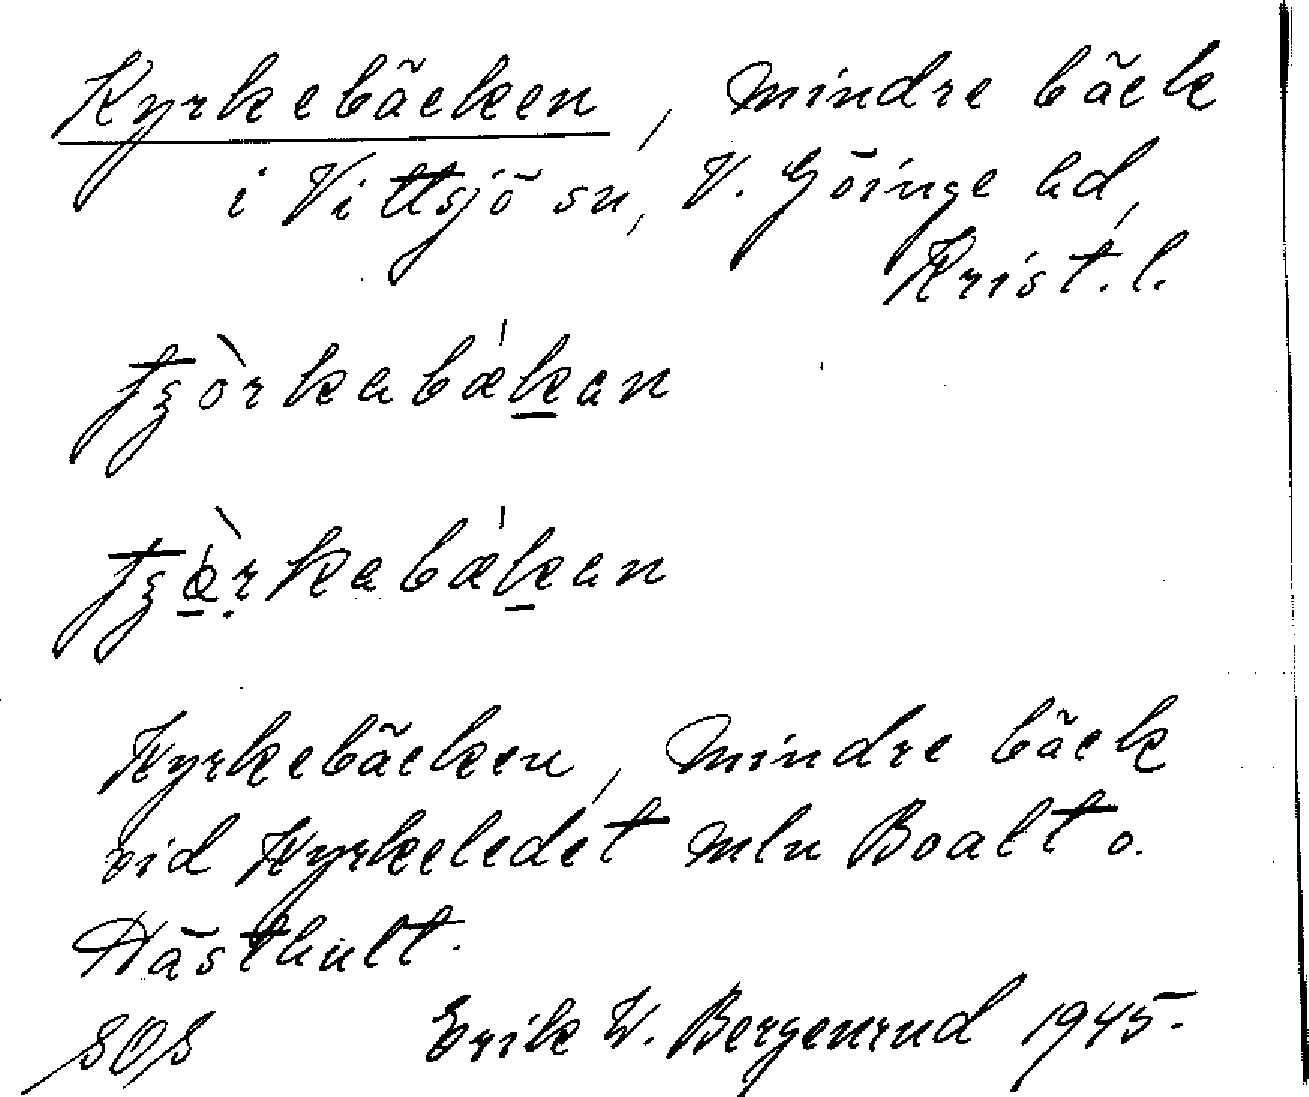 Kyrkebäcken, mindre bäck
i Vittsjö sn, V. Göinge hd,
Krist. l.
Kyrkebäcken, mindre bäck
vid Kyrkeledet mln Boalt o.
Hästhult.
Erik W. Bergenrud 1945.